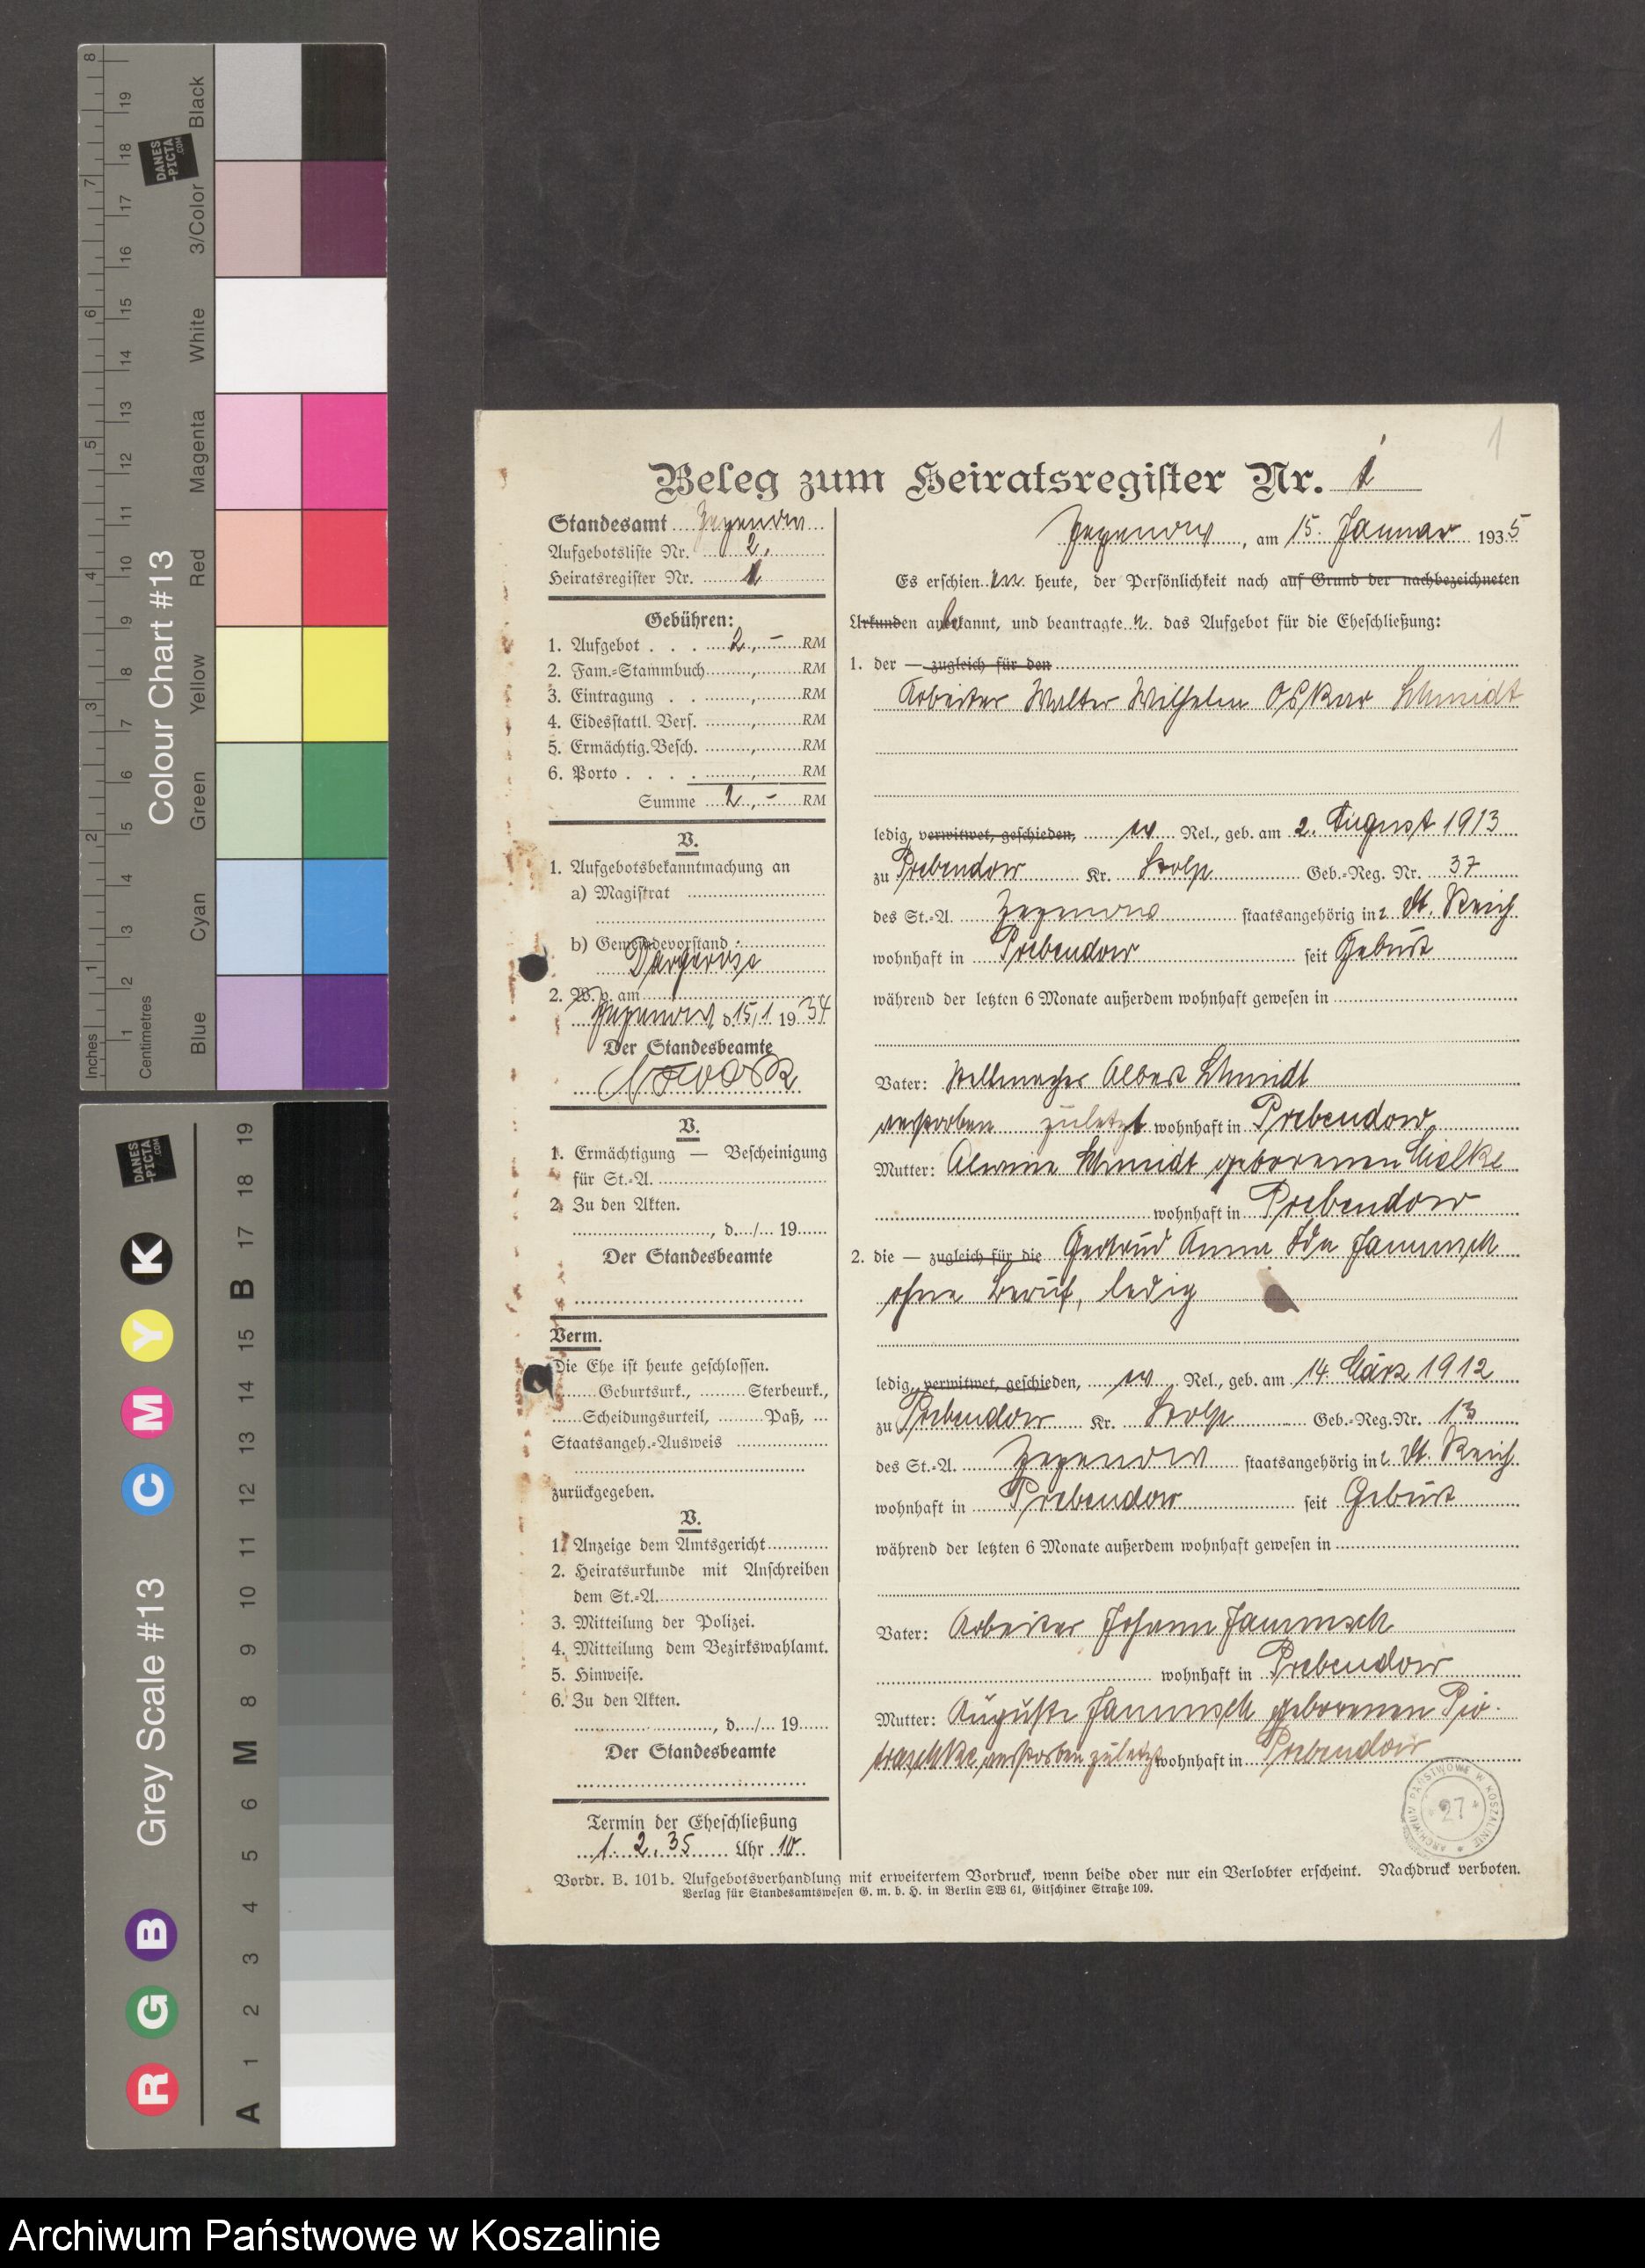 Beleg zum Heiratsregister Nr. 1
1
Standesamt Zezenow
Aufgebotsliste Nr. 2.
Heiratsregister Nr. 1
Gebühren:
1. Aufgebot . . . 2,- RM
2. Fam.-Stammbuch , RM
3. Eintragung . . , RM
4. Eidesstattl. Vers. , RM
5. Ermächtig. Besch. , RM
6. Porto . . . . , RM
Summe 2,- RM
V.
1. Aufgebotsbekanntmachung an
a) Magistrat
b) Gemeindevorstand :
Dargeröse
2. W. v. am
Zezenow d. 15/1 1934
Der Standesbeamte
V.
1. Ermächtigung — Bescheinigung
für St.-A.
2. Zu den Akten.
, d. / 19
Der Standesbeamte
Verm.
Die Ehe ist heute geschlossen.
Geburtsurk., Sterbeurk.,
Scheidungsurteil, Paß,
Staatsangeh.-Ausweis
zurückgegeben.
V.
1. Anzeige dem Amtsgericht
2. Heiratsurkunde mit Anschreiben
dem St.-A.
3. Mitteilung der Polizei.
4. Mitteilung dem Bezirkswahlamt.
5. Hinweise.
6. Zu den Akten.
, d. / 19
Der Standesbeamte
Termin der Eheschließung
1. 2. 35 Uhr 10
Zezenow, am 15. Januar 1935
Es erschien en heute, der Persönlichkeit nach auf Grund der nachbezeichneten
Urkunden bekannt, und beantragte n das Aufgebot für die Eheschließung:
1. der — zugleich für den
Arbeiter Walter Wilhelm Oskar Schmidt
ledig, verwitwet, geschieden, ev Rel., geb. am 2. August 1913
zu Prebendow Kr. Stolp Geb.-Reg. Nr. 37
des St.-A. Zezenow staatsangehörig in Dt. Reich
wohnhaft in Prebendow seit Geburt
während der letzten 6 Monate außerdem wohnhaft gewesen in
Vater: Stellmacher Albert Schmidt
verstorben zuletzt wohnhaft in Prebendow
Mutter: Alwine Schmidt geborenen Mielke
wohnhaft in Prebendow
2. die — zugleich für die Gertrud Anna Ida Jannusch
ohne Beruf, ledig
ledig, verwitwet, geschieden, ev Rel., geb. am 14. März 1912
zu Prebendow Kr. Stolp Geb.-Reg. Nr. 13
des St.-A. Zezenow staatsangehörig in Dt. Reich
wohnhaft in Prebendow seit Geburt
während der letzten 6 Monate außerdem wohnhaft gewesen in
Vater: Arbeiter Johann Jannusch
wohnhaft in Prebendow
Mutter: Auguste Jannusch geborenen Pio-
traschke, verstorben zuletzt wohnhaft in Prebendow
ARCHIWUM PAŃSTWOWE W KOSZALINIE
27
Vordr. B. 101b. Aufgebotsverhandlung mit erweitertem Vordruck, wenn beide oder nur ein Verlobter erscheint. Nachdruck verboten.
Verlag für Standesamtswesen G. m. b. H. in Berlin SW 61, Gitschiner Straße 109.
Colour Chart #13
Blue Cyan Green Yellow Red Magenta White 3/Color Black
Inches 1 2 3 4 5 6 7 8
Centimetres 1 2 3 4 5 6 7 8 9 10 11 12 13 14 15 16 17 18 19
DANES-PICTA.COM
Grey Scale #13
R G B C M Y K
A 1 2 3 4 5 6 M 8 9 10 11 12 13 14 15 B 17 18 19
DANES-PICTA.COM
Archiwum Państwowe w Koszalinie